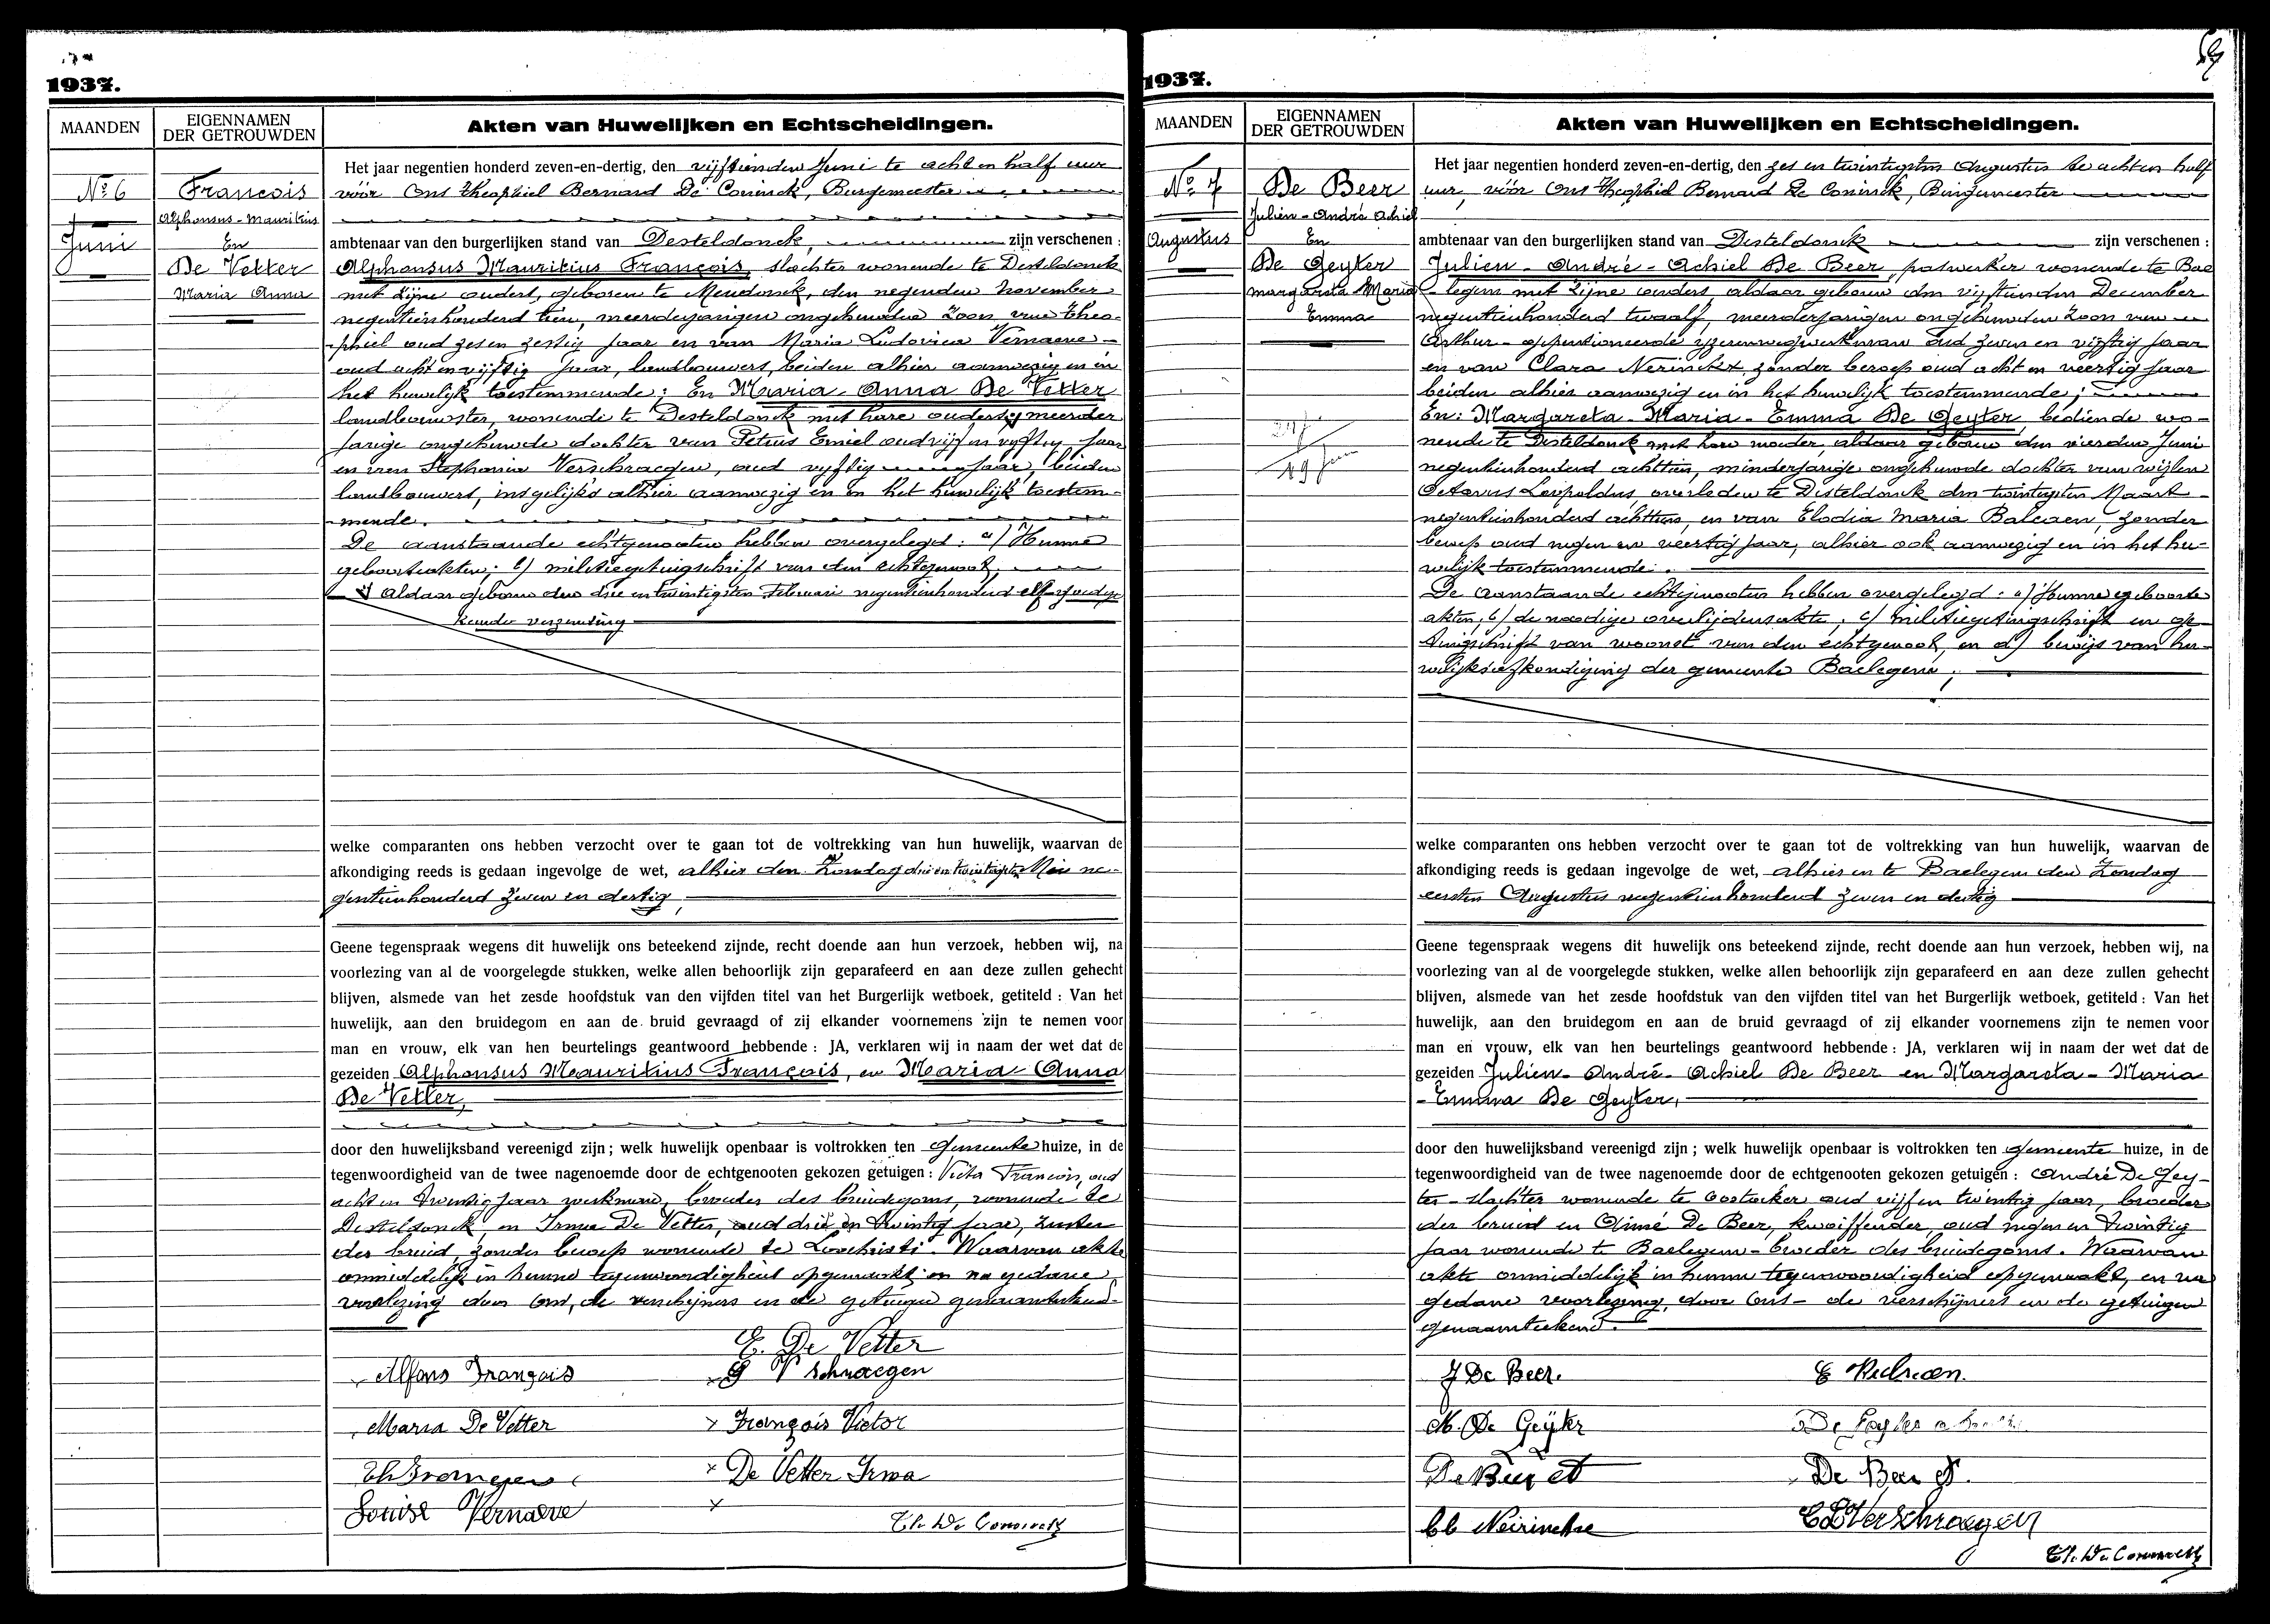 1937.
MAANDEN
EIGENNAMEN
DER GETROUWDEN
Akten van Huwelijken en Echtscheidingen.
No 6
Juni
François
Alphonsus-Mauritius
En
De Vetter
Maria Anna
Het jaar negentien honderd zeven-en-dertig, den vijftienden Juni te acht en half uur
vóór Ons Theophiel Bernard De Coninck, Burgemeester
ambtenaar van den burgerlijken stand van Desteldonck, zijn verschenen :
Alphonsus Mauritius François, slachter wonende te Desteldonck
met zijne ouders, geboren te Mendonck, den negenden November
negentienhonderd tien, meerderjarigen ongehuwden zoon van Theo-
phiel oud zes en zestig jaar en van Maria Ludovica Vernaeve
oud acht en vijftig jaar, landbouwers, beiden alhier aanwezig en in
het huwelijk toestemmende; En Maria Anna De Vetter
landbouwster, wonende te Desteldonck met hare ouders, meerder
jarige ongehuwde dochter van Petrus Emiel oud vijf en vyftig jaar
en van Stephania Verschraegen, oud vyftig jaar, beiden
landbouwers, insgelijks alhier aanwezig en in het huwelijk toestem-
mende.
De aanstaande echtgenooten hebben overgelegd : a) Hunne
geboorteakten; b) militiegetuigschrift van den echtgenoot;
aldaar geboren den drie en twintigsten Februari negentienhonderd elf goedge
keurde verzending
welke comparanten ons hebben verzocht over te gaan tot de voltrekking van hun huwelijk, waarvan de
afkondiging reeds is gedaan ingevolge de wet, alhier den Zondag drie en twintigsten Mei ne-
gentienhonderd zeven en dertig,
Geene tegenspraak wegens dit huwelijk ons beteekend zijnde, recht doende aan hun verzoek, hebben wij, na
voorlezing van al de voorgelegde stukken, welke allen behoorlijk zijn geparafeerd en aan deze zullen gehecht
blijven, alsmede van het zesde hoofdstuk van den vijfden titel van het Burgerlijk wetboek, getiteld : Van het
huwelijk, aan den bruidegom en aan de bruid gevraagd of zij elkander voornemens zijn te nemen voor
man en vrouw, elk van hen beurtelings geantwoord hebbende : JA, verklaren wij in naam der wet dat de
gezeiden Alphonsus Mauritius François, en Maria Anna
De Vetter,
door den huwelijksband vereenigd zijn ; welk huwelijk openbaar is voltrokken ten gemeente huize, in de
tegenwoordigheid van de twee nagenoemde door de echtgenooten gekozen getuigen : Victor François, oud
acht en twintig jaar werkman, broeder des bruidegoms, wonende te
Desteldonck, en Irma De Vetter, oud drie en twintig jaar, zuster
der bruid, zonder beroep wonende te Loochristi. Waarvan akte
onmiddelijk in hunne tegenwoordigheid opgemaakt en na gedane
voorlezing door Ons, de verschijners en de getuigen genaamteekend.
E. De Vetter
Alfons François
S Verschraegen
Maria De Vetter
François Victor
De Vetter Irma
Louise Vernaeve
Th. De Coninck
1937.
MAANDEN
EIGENNAMEN
DER GETROUWDEN
Akten van Huwelijken en Echtscheidingen.
No 7
Augustus
De Beer
Julien-André Achiel
En
De Geyter
Margareta Maria
Emma
19 Juni
Het jaar negentien honderd zeven-en-dertig, den zes en twintigsten Augustus te acht en half
uur, vóór Ons Theophiel Bernard De Coninck, Burgemeester
ambtenaar van den burgerlijken stand van Desteldonck zijn verschenen :
Julien-André-Achiel De Beer, paswerker wonende te Bae
legem met zijne ouders, aldaar geboren den vijftienden December
negentienhonderd twaalf, meerderjarigen ongehuwden zoon van
Arthur - gepensioneerde yzerenwegwerkman oud zeven en vijftig jaar
en van Clara Nerinckx, zonder beroep oud acht en veertig jaar
beiden alhier aanwezig en in het huwelijk toestemmende;
En: Margareta-Maria-Emma De Geyter, bediende wo-
nende te Desteldonck met hare moeder, aldaar geboren den vierden Juni
negentienhonderd achttien, minderjarige ongehuwde dochter van wijlen
Octavus Leopoldus, overleden te Desteldonck den twintigsten Maart
negentienhonderd achttien, en van Elodia Maria Balcaen, zonder
beroep oud negen en veertig jaar, alhier ook aanwezig en in het hu-
welijk toestemmende.
De aanstaande echtgenooten hebben overgelegd : a) Hunne geboorte
akten, b) de noodige overlijdensakte, c) militiegetuigschrift en ge-
tuigschrift van woonst van den echtgenoot, en d) bewijs van hu-
welijksafkondiging der gemeente Baelegem;
welke comparanten ons hebben verzocht over te gaan tot de voltrekking van hun huwelijk, waarvan de
afkondiging reeds is gedaan ingevolge de wet, alhier en te Baelegem den Zondag
eersten Augustus negentienhonderd zeven en dertig
Geene tegenspraak wegens dit huwelijk ons beteekend zijnde, recht doende aan hun verzoek, hebben wij, na
voorlezing van al de voorgelegde stukken, welke allen behoorlijk zijn geparafeerd en aan deze zullen gehecht
blijven, alsmede van het zesde hoofdstuk van den vijfden titel van het Burgerlijk wetboek, getiteld : Van het
huwelijk, aan den bruidegom en aan de bruid gevraagd of zij elkander voornemens zijn te nemen voor
man en vrouw, elk van hen beurtelings geantwoord hebbende : JA, verklaren wij in naam der wet dat de
gezeiden Julien-André-Achiel De Beer en Margareta-Maria
-Emma De Geyter,
door den huwelijksband vereenigd zijn ; welk huwelijk openbaar is voltrokken ten gemeente huize, in de
tegenwoordigheid van de twee nagenoemde door de echtgenooten gekozen getuigen : André De Gey-
ter - slachter wonende te Oostacker oud vijf en twintig jaar, broeder
der bruid en Aimé De Beer, kwoiffender, oud negen en twintig
jaar wonende te Baelegem - broeder des bruidegoms. Waarvan
akte onmiddelijk in hunne tegenwoordigheid opgemaakt, en na
gedane voorlezing, door Ons - de verschijners en de getuigen
genaamteekend.
J De Beer.
M. De Geÿter
De Beer A.
De Beer A
Cl Neirinckx
Verschraegen
Th. De Coninck